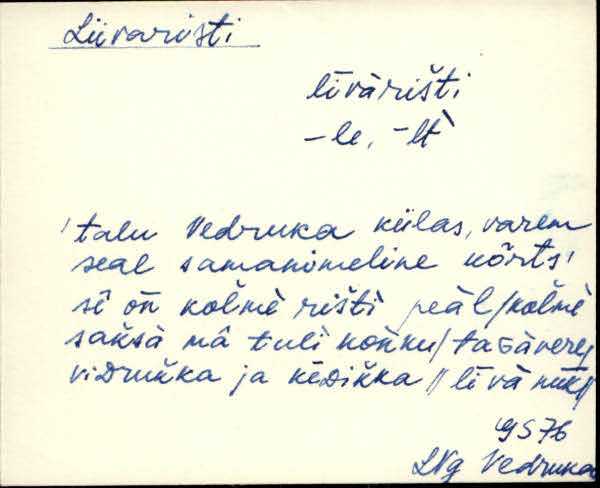 Liivaristi
līvàrišti
-le, -lt̀
'talu Vedruka külas, varem
seal samanimeline kõrts'
sē̂ oñ kolmè rištì peäl / kolmè
saksà mā̂ tulì kokku / tasàvere /
viDrukka ja keDikka //
GS76
LNg Vedruka